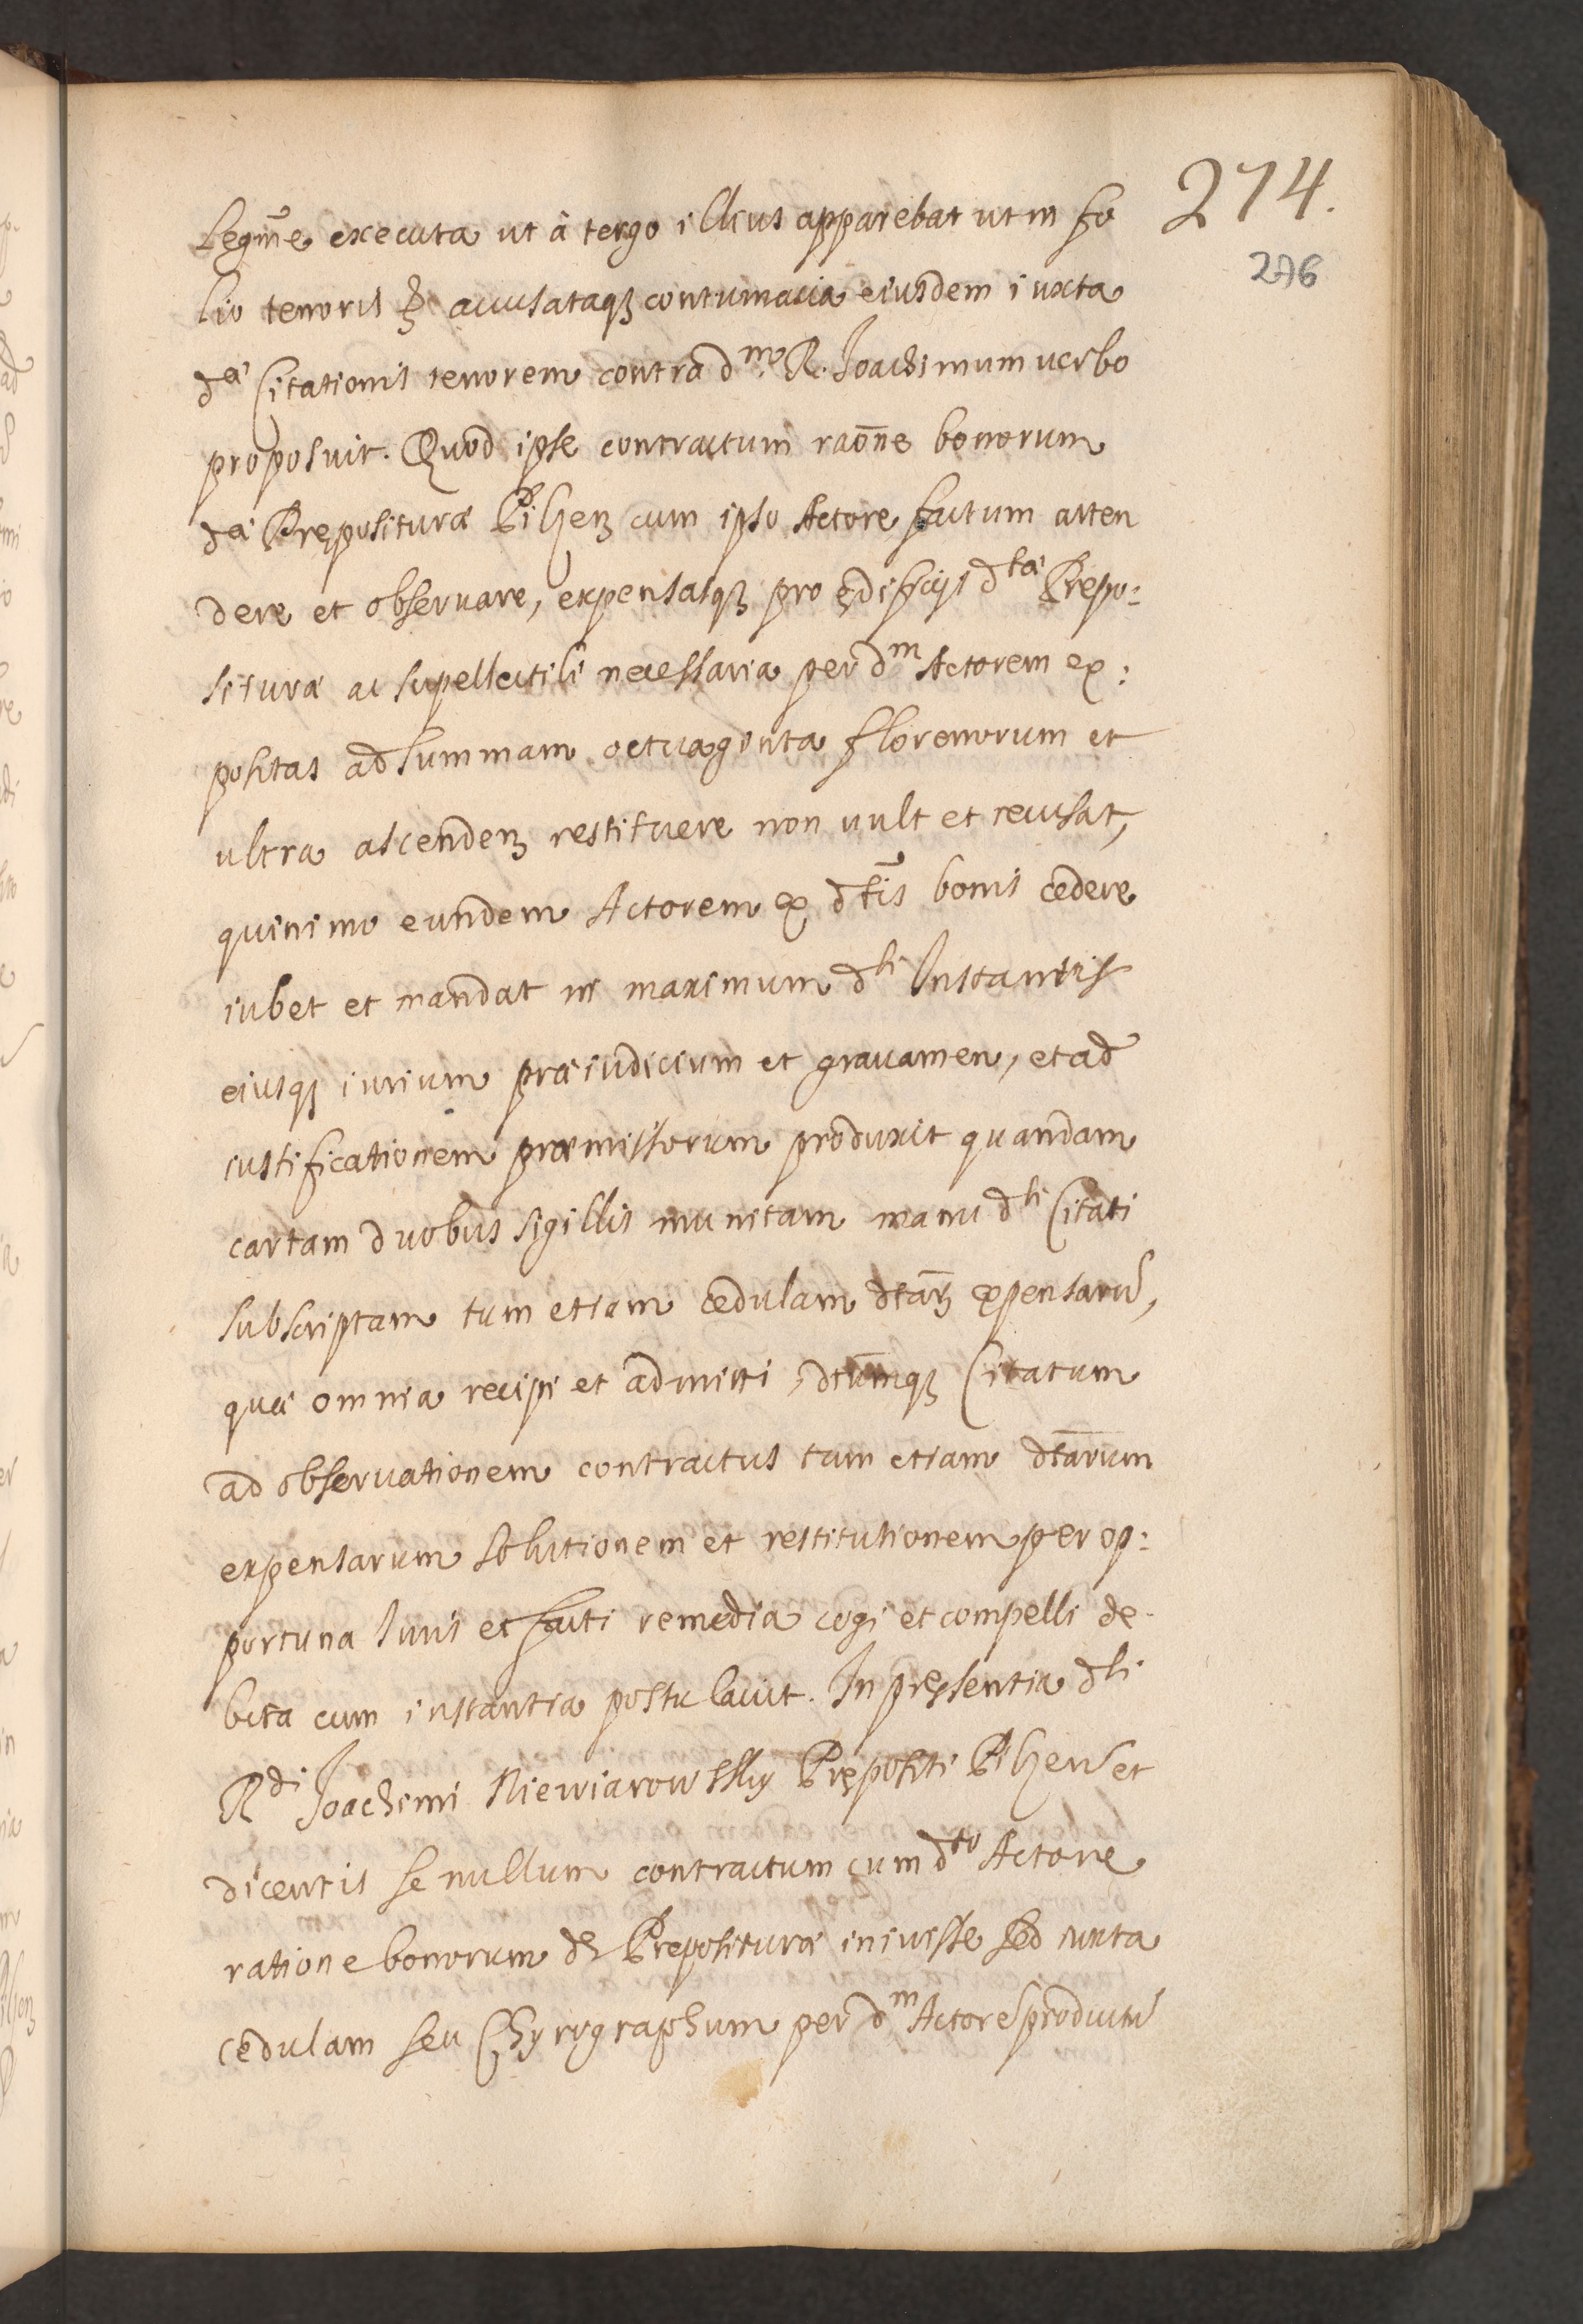 274.
276
Legitme executa ut à tergo illius apparebat ut in fo
lio tenoris &c accusataqꝫ contumacia eiusdem iuxta
dæ Citationis tenorem contra dm R. Joachimum verbo
proposuit. Quod ipse contractum raōne bonorum
dæ Pręposituræ Pilzenꝫ cum ipso Actore factum atten
dere et observare, expensasqꝫ pro ędificijs dtæ Prepo:
situræ ac supellectili necessaria per dm Actorem ex:
positas ad summam octuaginta florenorum et
ultra ascendenꝫ restituere non vult et recusat,
quinimo eundem Actorem ex dtis bonis cedere
iubet et mandat in maximum dti Instantis
eiusqꝫ iurium præiudicium et gravamen, et ad
iustificationem præmissorum produxit quandam
cartam duobus sigillis munitam manu dti Citati
subscriptam tum etiam cedulam dtarꝫ expensarū,
quæ omnia recipi et admitti, dtumqꝫ Citatum
ad observationem contractus tum etiam dtarum
expensarum solutionem et restitutionem per op:
portuna Iuris et facti remedia cogi et compelli de-
bita cum instantia postulavit. In pręsentia dti
Rdi Joachimi Niewiarowssky Prępositi Pilzenꝫ et
dicentis se nullum contractum cum dto Actore
ratione bonorum dę Preposituræ iniuisse sed iuxta
cedulam seu Chyrographum per dm Actorē productū